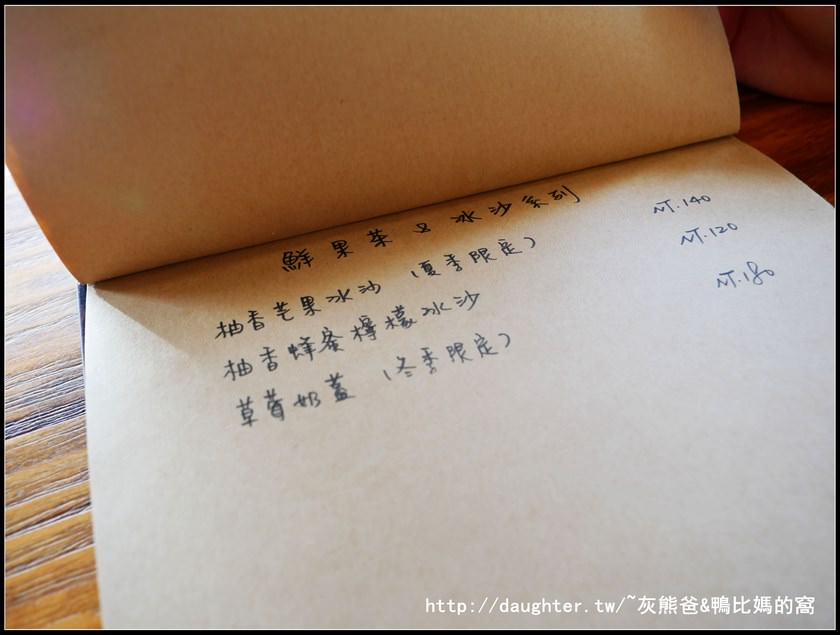 鮮果茶&冰沙系列
柚香芒果冰沙 (夏季限定) NT.140
柚香蜂蜜檸檬冰沙 NT.120
草莓奶蓋 (冬季限定) NT.180
http://daughter.tw/~灰熊爸&鴨比媽的窩